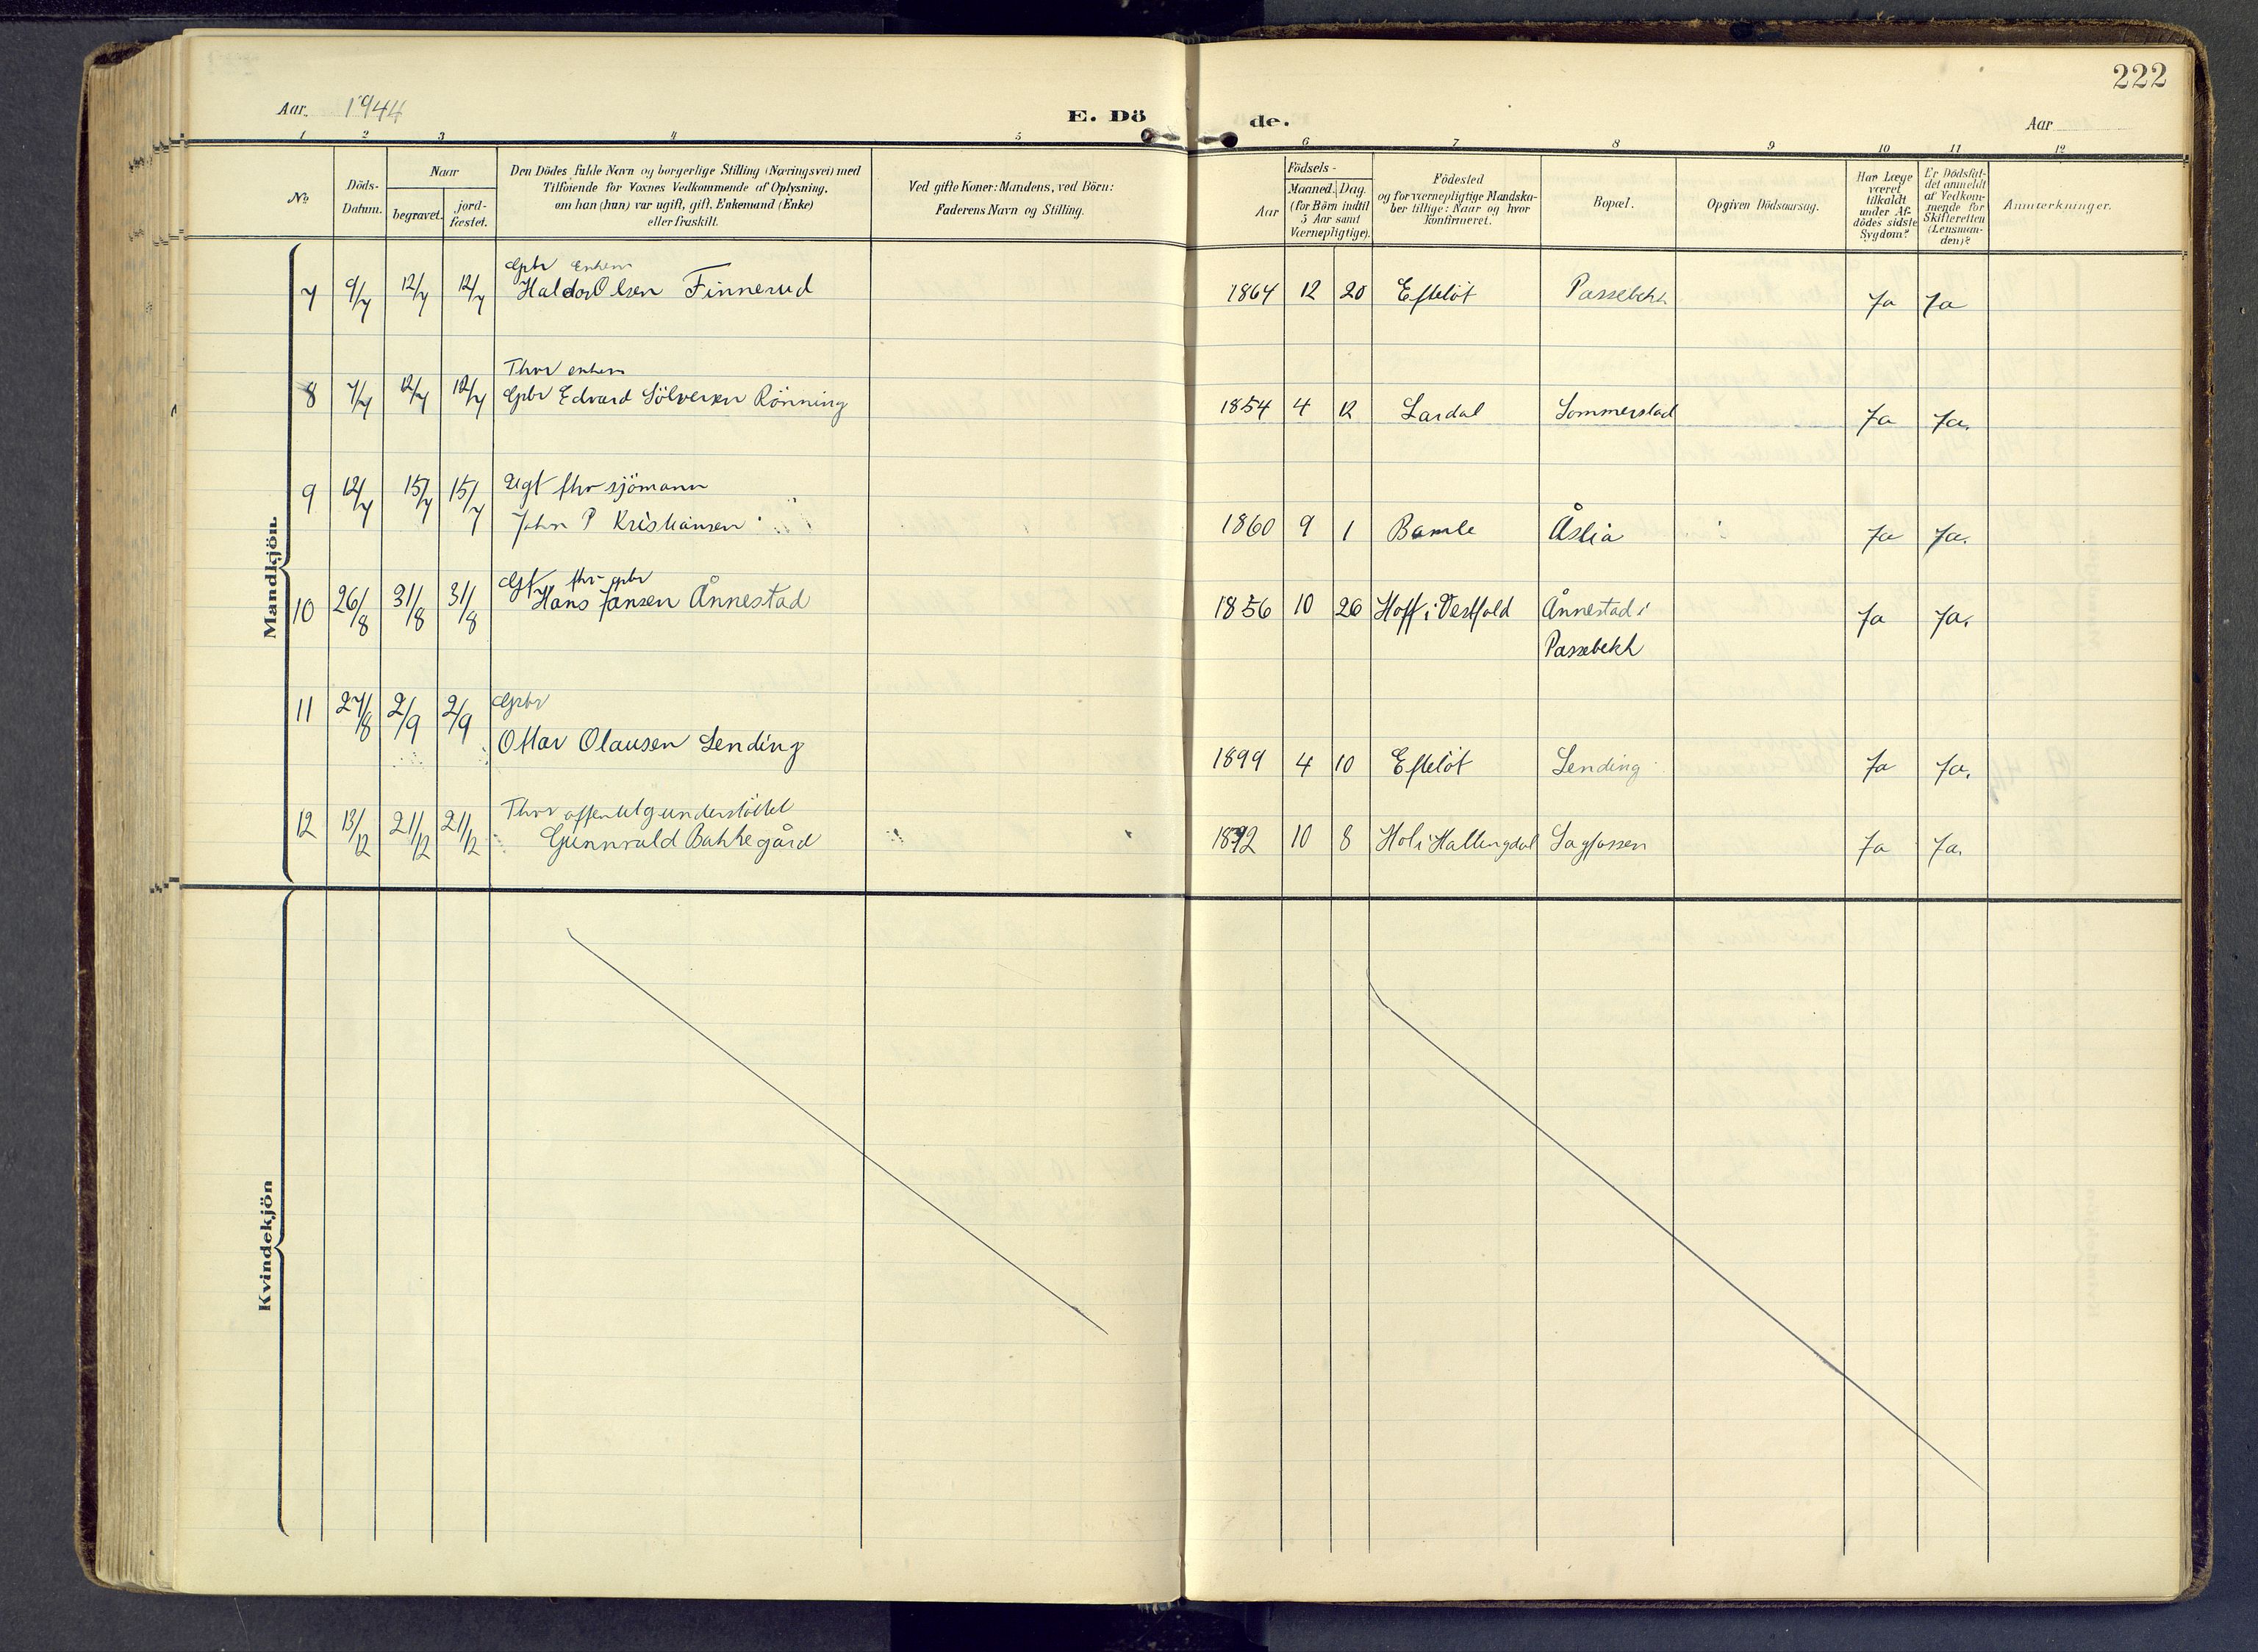 222
Aar. 1944
E. Dö de.
Aar
1 2 3 4 5 6 7 8 9 10 11 12
No
Döds-Datum.
Naar
begravet.
jord-fæstet.
Den Dödes fulde Navn og borgerlige Stilling (Næringsvei) med
Tilföiende for Voxnes Vedkommende af Oplysning,
om han (hun) var ugift, gift, Enkemand (Enke)
eller fraskilt.
Ved gifte Koner: Mandens, ved Börn:
Faderens Navn og Stilling.
Aar
Födsels-
Maaned. Dag.
(for Börn indtil
5 Aar samt
Værnepligtige).
Födested
og for værnepligtige Mandska-
ber tillige: Naar og hvor
konfirmeret.
Bopæl.
Opgiven Dödsaarsag.
Har Læge
været
tilkaldt
under Af-
dödes sidste
Sygdom?
Er Dödsfal-
det anmeldt
af Vedkom-
mende for
Skifteretten
(Lensman-
den)?
Anmærkninger.
Mandkjön.
Gbr Enkem
7 9/7 12/7 12/7 Haldor Olsen Finnerud 1864 12 20 Efteløt Passebekk Ja Ja
Thor enkem
8 7/7 12/7 12/7 Gbr Edvard Sölversen Rönning 1854 4 12 Lardal Sommerstad Ja Ja.
9 12/7 15/7 15/7 Ugt fhv sjömann
John P Kristiansen 1860 9 1 Bamle Åslia Ja Ja.
Gt fhv gbr
10 26/8 31/8 31/8 Hans Jansen Ånnestad 1856 10 26 Hoff i Vestfold Ånnestad i Ja Ja.
Passebekk
11 27/8 2/9 2/9 Gbr
Ottar Olausen Lending 1899 4 10 Efteløt Lending Ja Ja.
Thor offentlig understöttet
12 13/12 21/12 21/12 Gunnvald Bakkegård 1892 10 8 Hol i Hallingdal Sagfossen Ja Ja.
Kvindekjön